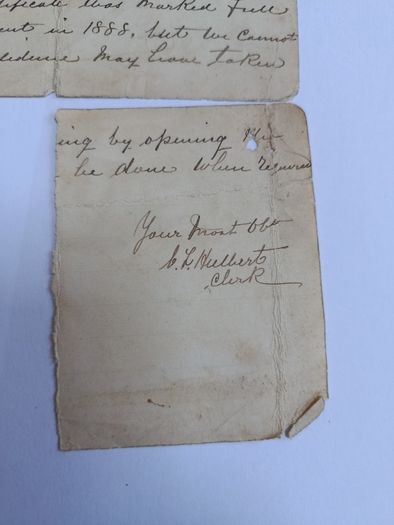 tificate was marked full
ent in 1888, but we cannot
idence may have taken
ing by opening the
be done when required
Your Most Obt
C. L. Hulbert
Clerk